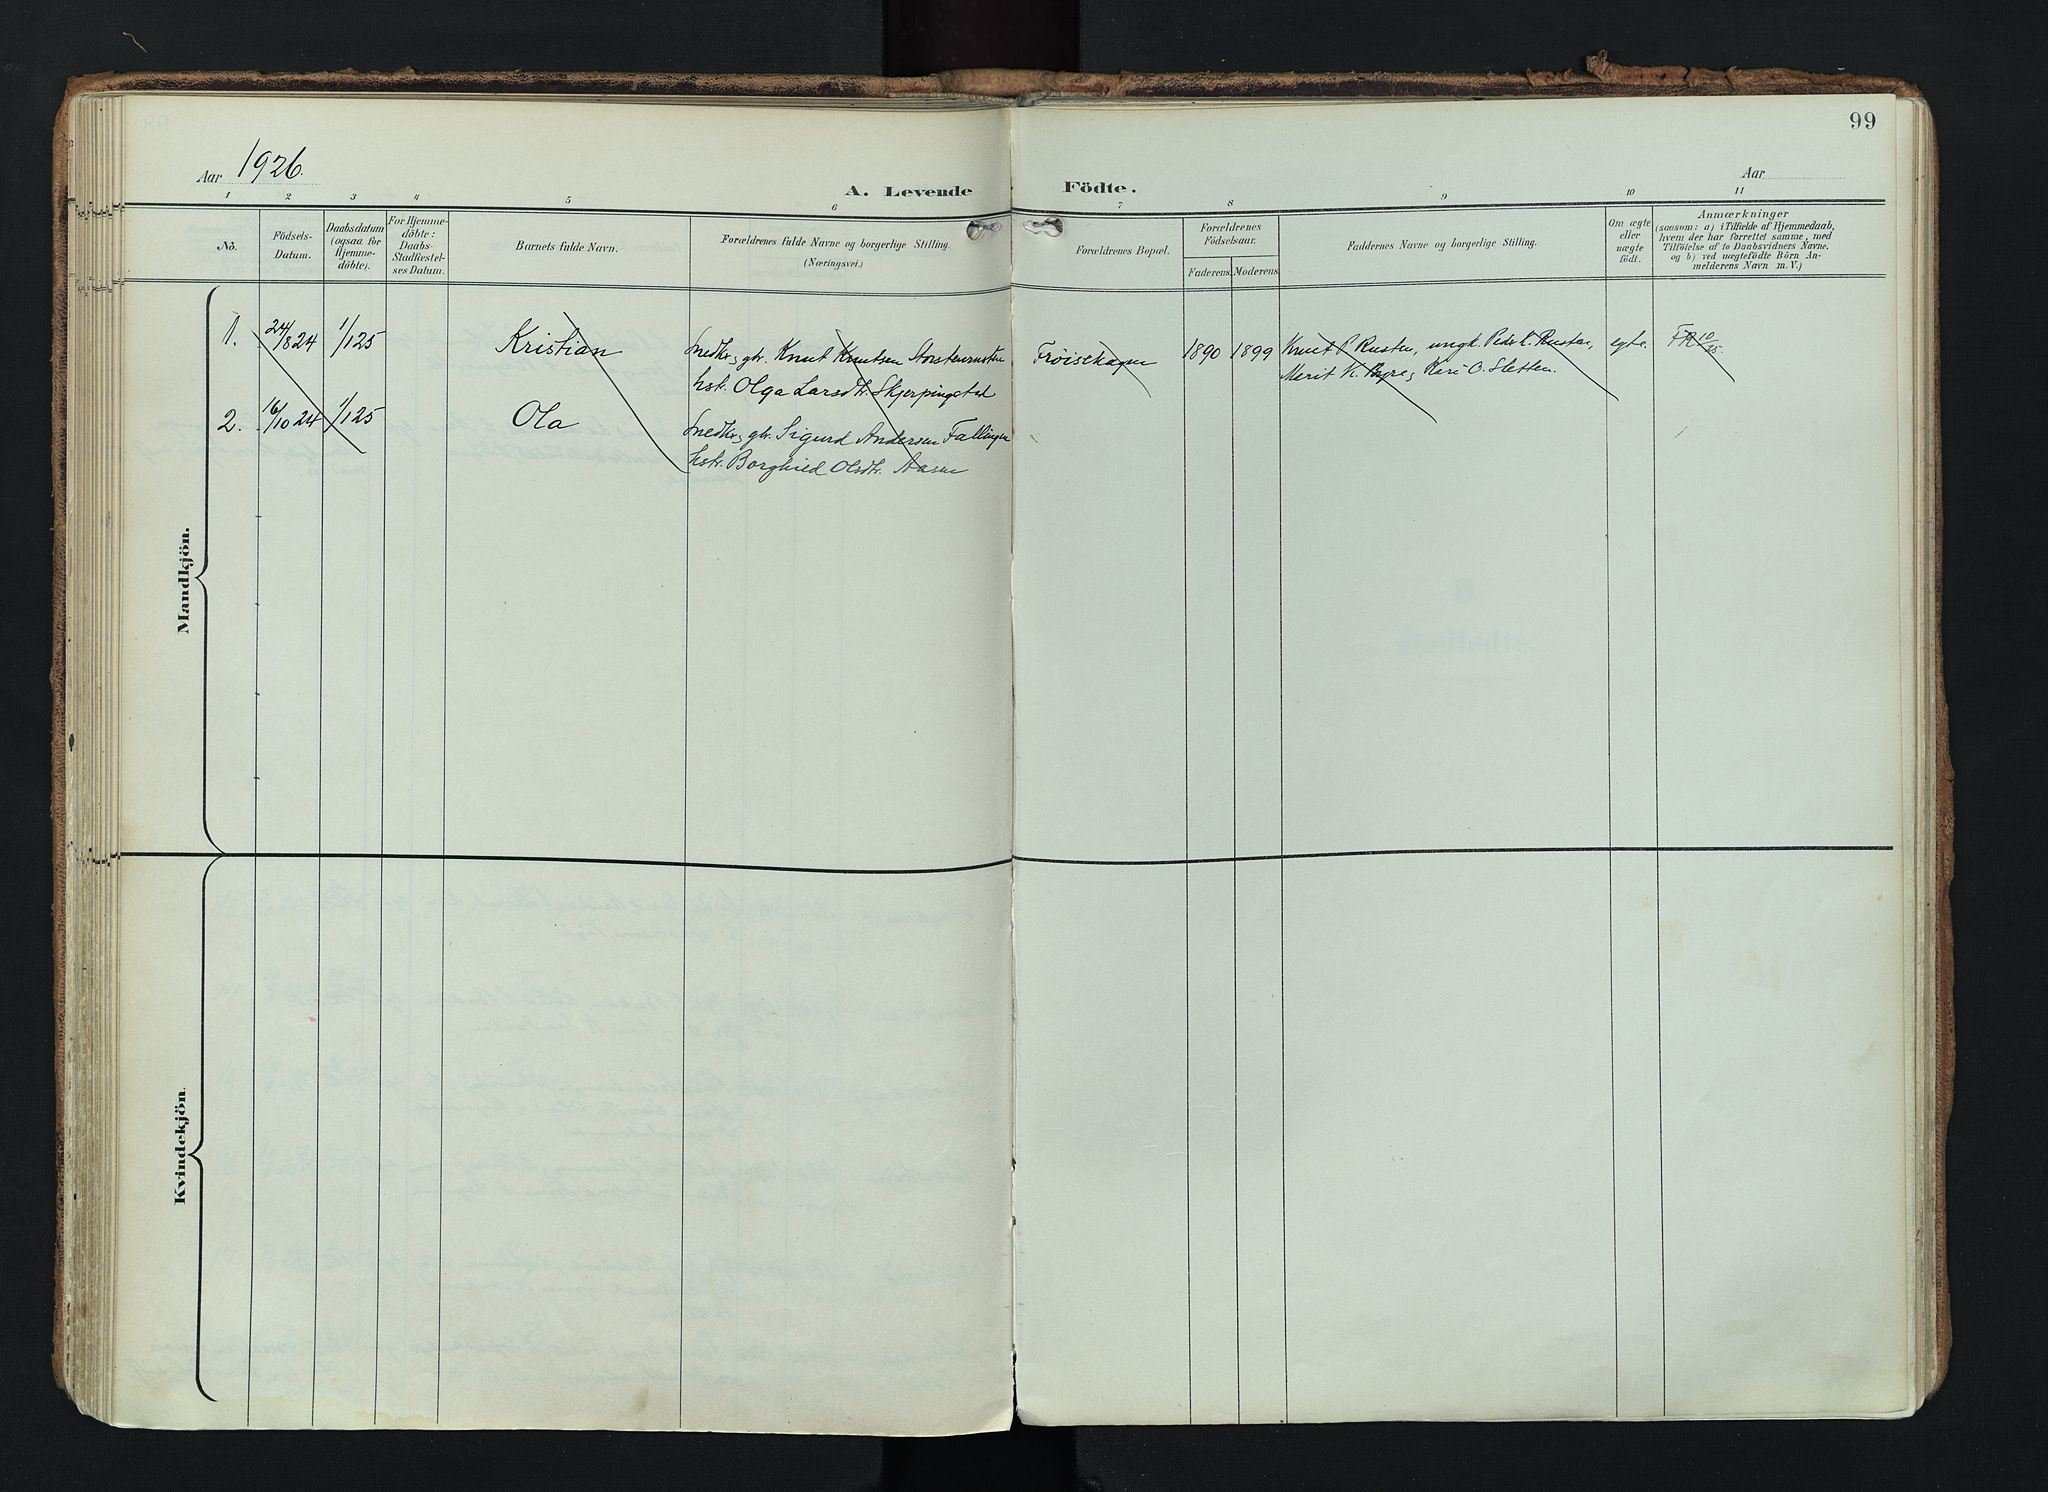 99
Aar 1926.
A. Levende Födte.
Aar
1 2 3 4 5 6 7 8 9 10 11
Nô.
Födsels-
Datum.
Daabsdatum
(ogsaa for
Hjemme-
döbte).
For Hjemme-
döbte:
Daabs-
Stadfæstel-
ses Datum.
Barnets fulde Navn.
Forældrenes fulde Navne og borgerlige Stilling.
(Næringsvei.)
Forældrenes Bopæl.
Forældrenes
Födselsaar.
Faderens. Moderens.
Faddernes Navne og borgerlige Stilling.
Om ægte
eller
uægte
födt.
Anmærkninger
(saasom: a) i Tilfælde af Hjemmedaab,
hvem der har forrettet samme, med
Tilföielse af to Daabsvidners Navne,
og b) ved uægtefödte Börn An-
melderens Navn m. V.)
Mandkjön.
1. 24/8 24 1/1 25 Kristian
Knut Knutsen
hstr. Olga Larsdtr. Skjerpingstad
1890 1899
Knut P. Rusten, ungk. Rusten,
Marit K. Kari O. Sletten.
egte.
2. 16/10 24 1/1 25 Ola
Sigurd Andersen Fallingen
hstr. Borghild Olsdtr. Aasen
Kvindekjön